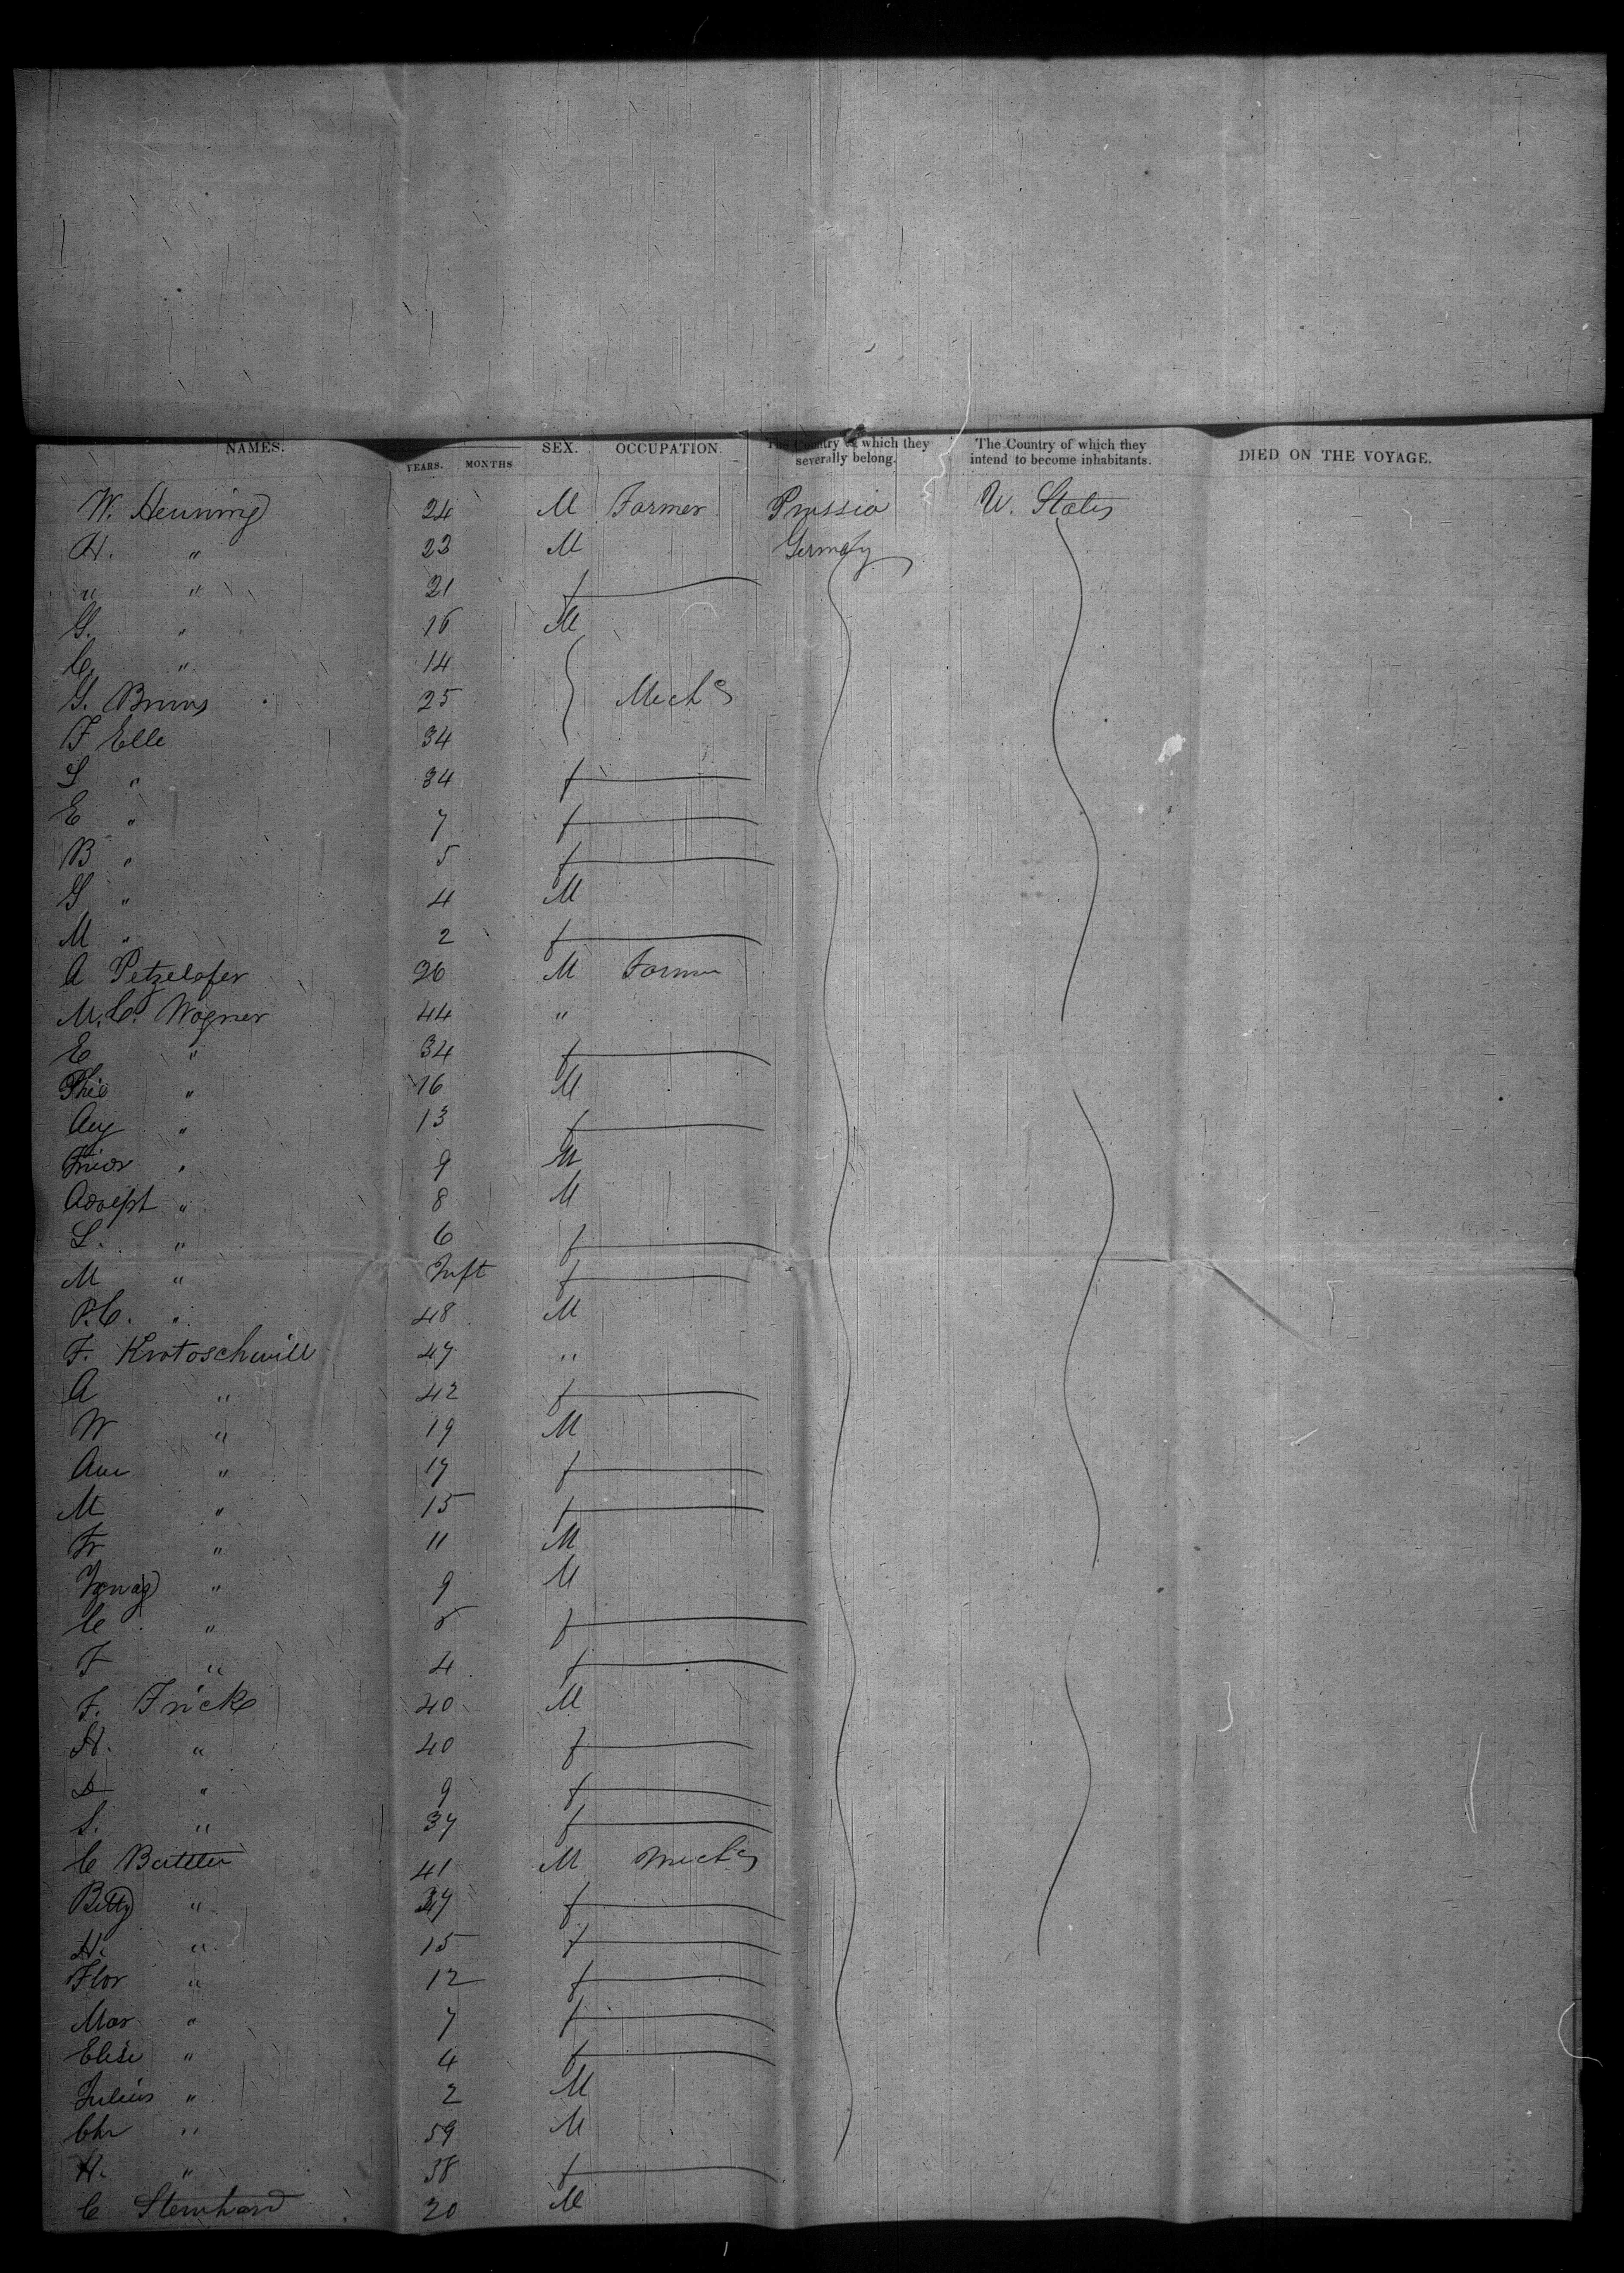 NAMES. YEARS. MONTHS SEX. OCCUPATION. The Country of which they severally belong. The Country of which they intend to become inhabitants. DIED ON THE VOYAGE.
W. Henning 24 M Farmer Prussia U. States
H. " 23 M Germany
" " 21 f
G. " 16 M
C. " 14
G. Bruns 25 Mech's
F Elle 34
S " 34 f
E " 7 f
B " 5 f
G " 4 M
M " 2 f
A Petzelofer 26 M Farmer
M. C. Wagner 44 "
E " 34 f
Phie " 16 M
Aug " 13 f
Frier " 9 M
Adolph " 8 M
L. " 6 f
M " Inft f
P. C. " 48 M
F. Krotoschwill 47 "
A " 42 f
W " 19 M
Ann " 17 f
M " 15 f
Fr " 11 M
Ignaz " 9 M
C " 5 f
F " 4 f
F. Fricke 40 M
H. " 40 f
D " 9 f
S. " 37 f
C 41 M Mech's
Betty " 37 f
H. " 15 f
Flor " 12 f
Mar " 7 f
Elise " 4 f
Julius " 2 M
Chr " 59 M
H. " 38 f
C Steinhard 20 M